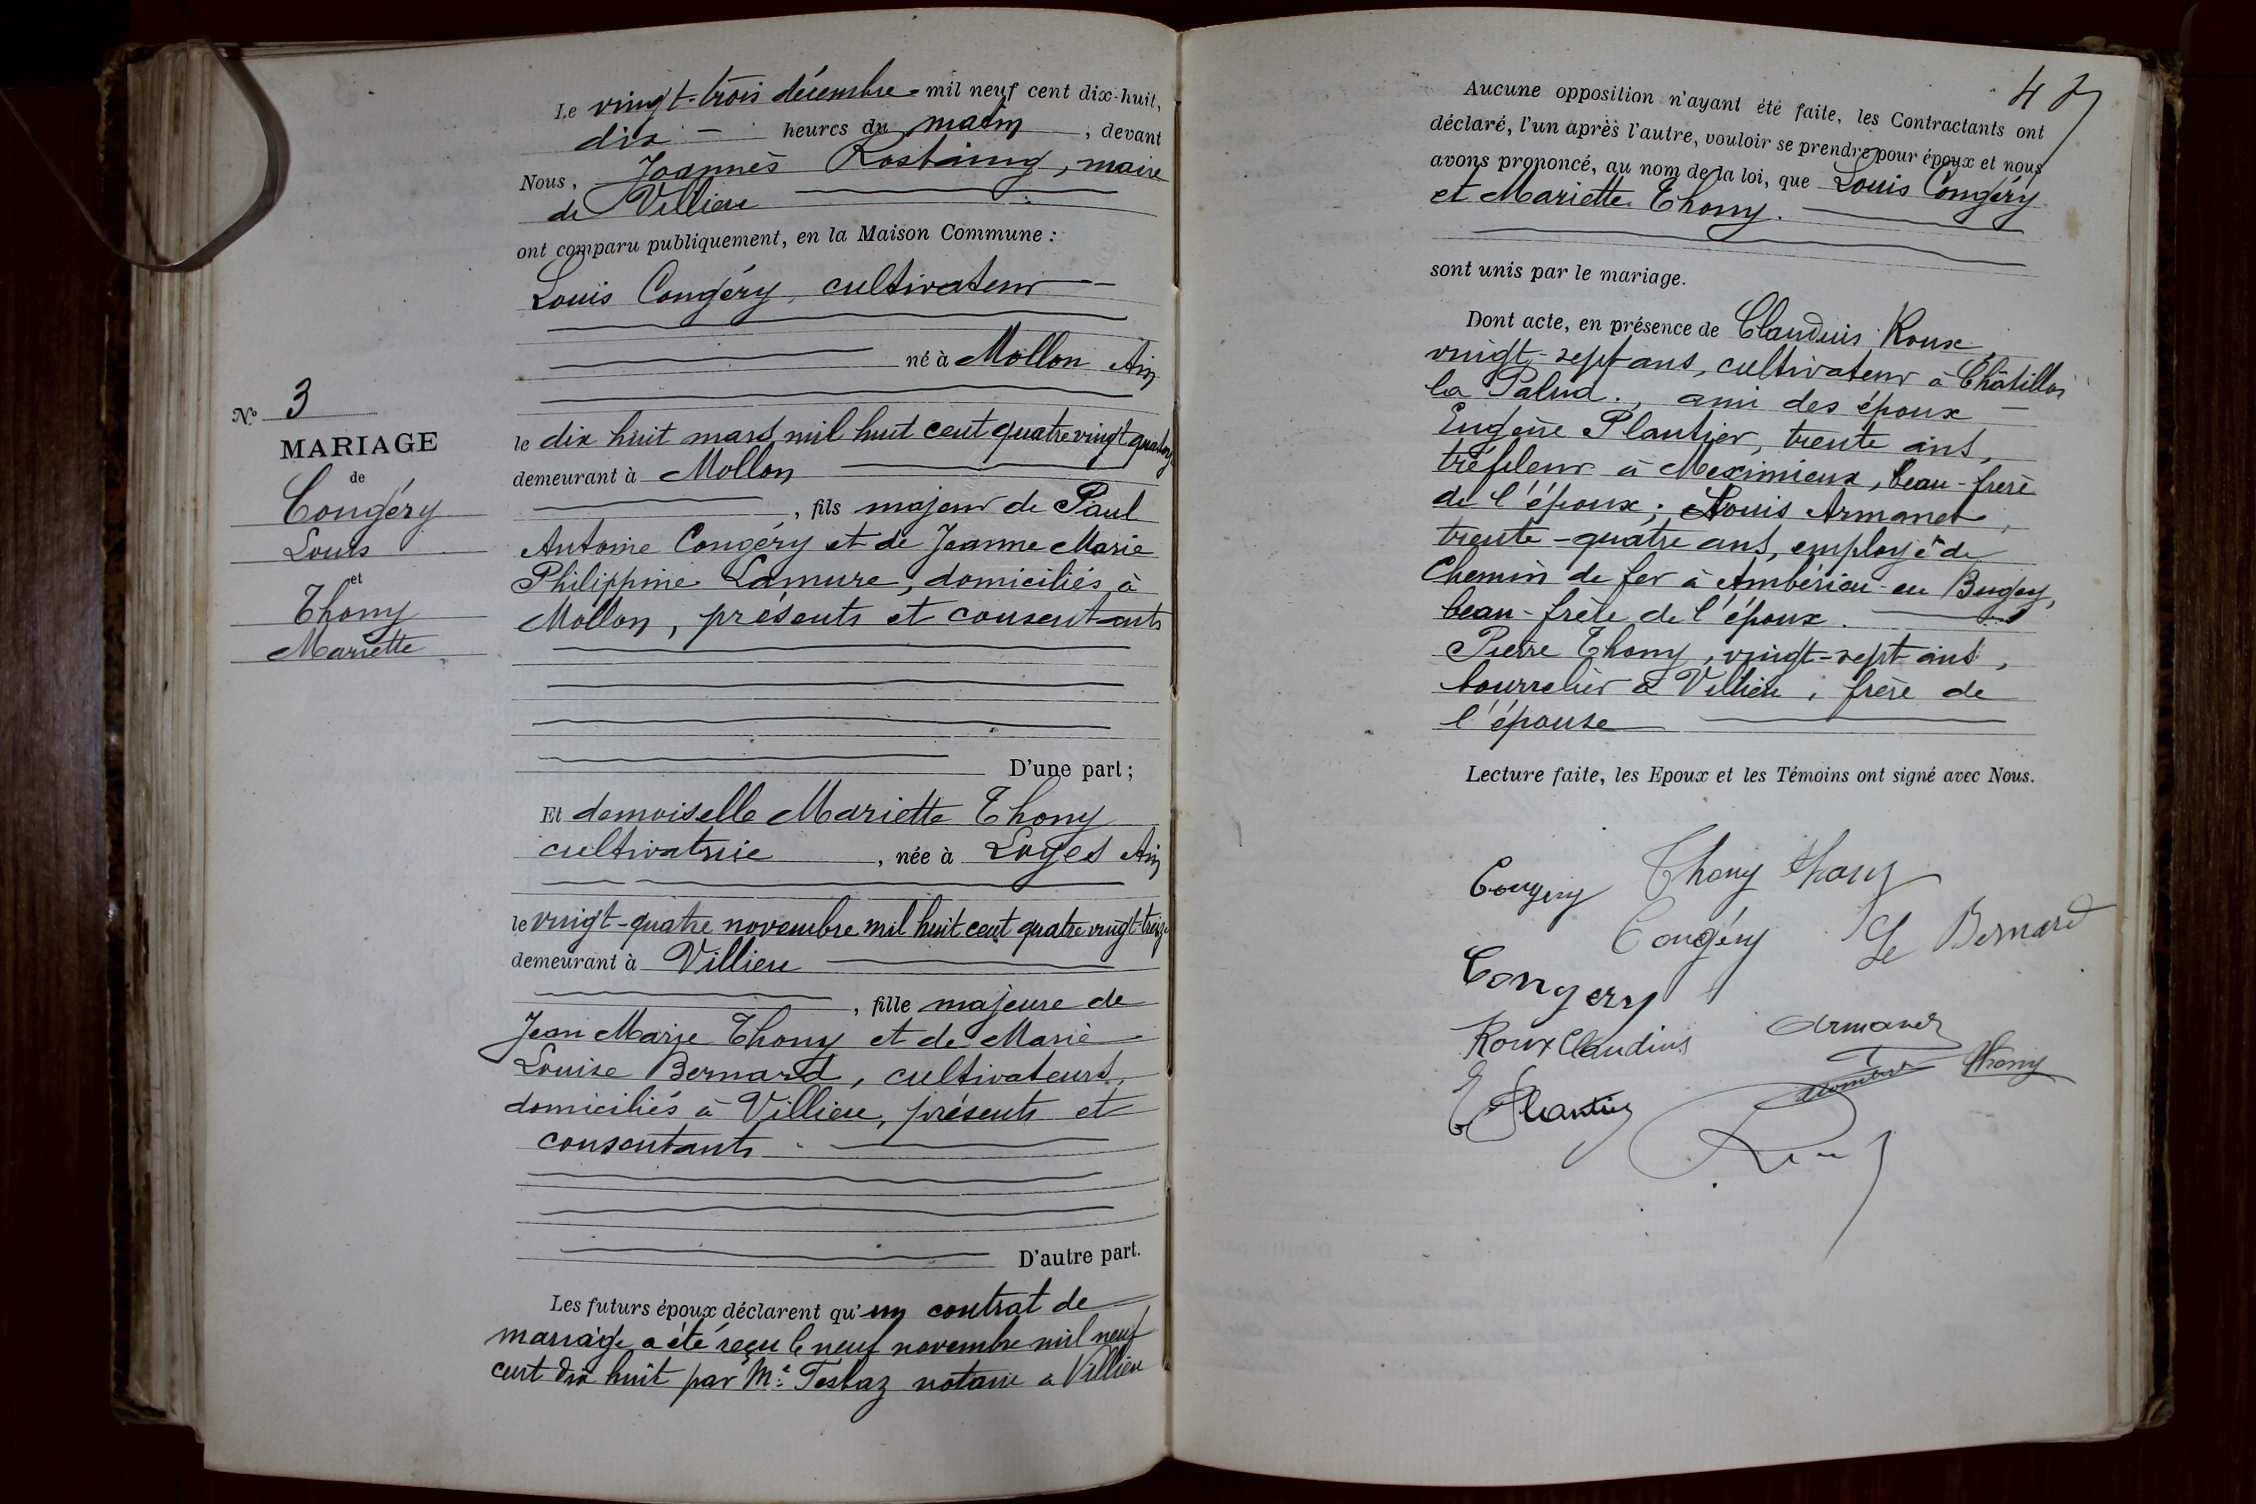 Le vingt-trois décembre mil neuf cent dix-huit,
dix heures du matin, devant
Nous, Joannès Rostaing, maire
de Villieu
ont comparu publiquement, en la Maison Commune :
Louis Congéry, cultivateur
né à Mollon Ain
le dix huit mars mil huit cent quatre vingt quatorze
demeurant à Mollon
, fils majeur de Paul
Antoine Congéry et de Jeanne Marie
Philippine Lamure, domiciliés à
Mollon, présents et consentants
D'une part ;
Et demoiselle Mariette Thony
cultivatrice, née à Loyes Ain
le vingt-quatre novembre mil huit cent quatre vingt-treize
demeurant à Villieu
, fille majeure de
Jean Marie Thony et de Marie
Louise Bernard, cultivateurs,
domiciliés à Villieu, présents et
consentants
D'autre part.
Les futurs époux déclarent qu'un contrat de
mariage a été reçu le neuf novembre mil neuf
cent dix huit par Me Testaz notaire a Villieu
No 3
MARIAGE
de
Congéry
Louis
et
Thony
Mariette
Aucune opposition n'ayant été faite, les Contractants ont
déclaré, l'un après l'autre, vouloir se prendre pour époux et nous
avons prononcé, au nom de la loi, que Louis Congéry
et Mariette Thony.
sont unis par le mariage.
Dont acte, en présence de Claudius Roux,
vingt-sept ans, cultivateur à Châtillon
la Palud., ami des époux
Eugène Plantier, trente ans,
tréfileur à Meximieux, beau-frère
de l'époux; Louis Armanet,
trente-quatre ans, employé de
Chemin de fer à Ambérieu-en Bugey,
beau-frère de l'époux.
Pierre Thony, vingt-sept ans,
bourrelier à Villieu, frère de
l'épouse
Lecture faite, les Epoux et les Témoins ont signé avec Nous.
Congery Thony Thony
Congéry Le Bernard
Congery
Roux Claudius Armanet
Thony
E Plantier